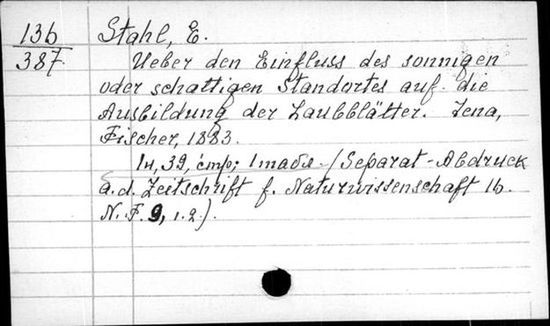 136 Stahl, E.
387 Ueber den Einfluss des sonnigen
oder schattigen Standortes auf die
Ausbildung der Laubblätter. Jena,
Fischer, 1883.
39, стр; 1 табл. (Separat-Abdruck
a. d. Zeitschrift f. Naturwissenschaft 16.
N. F. 9, 1. 2).